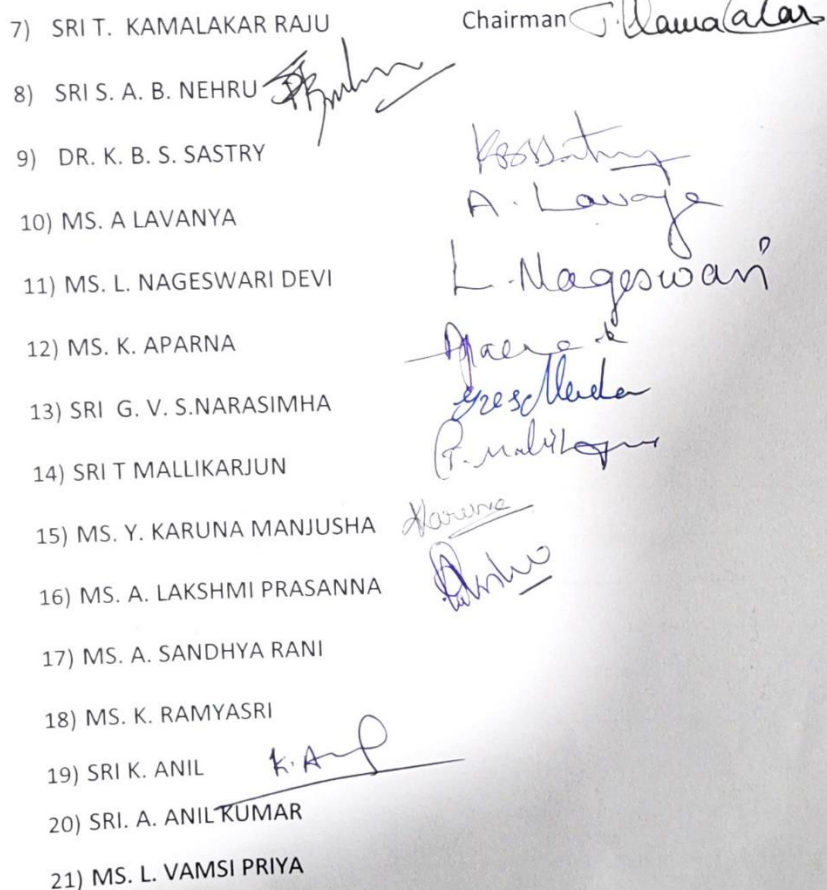 7) SRI T. KAMALAKAR RAJU Chairman
8) SRI S. A. B. NEHRU
9) DR. K. B. S. SASTRY
10) MS. A LAVANYA A. Lavanya
11) MS. L. NAGESWARI DEVI L. Nageswari
12) MS. K. APARNA
13) SRI G. V. S.NARASIMHA
14) SRI T MALLIKARJUN
15) MS. Y. KARUNA MANJUSHA Karuna
16) MS. A. LAKSHMI PRASANNA
17) MS. A. SANDHYA RANI
18) MS. K. RAMYASRI
19) SRI K. ANIL K. Anil
20) SRI. A. ANIL KUMAR
21) MS. L. VAMSI PRIYA